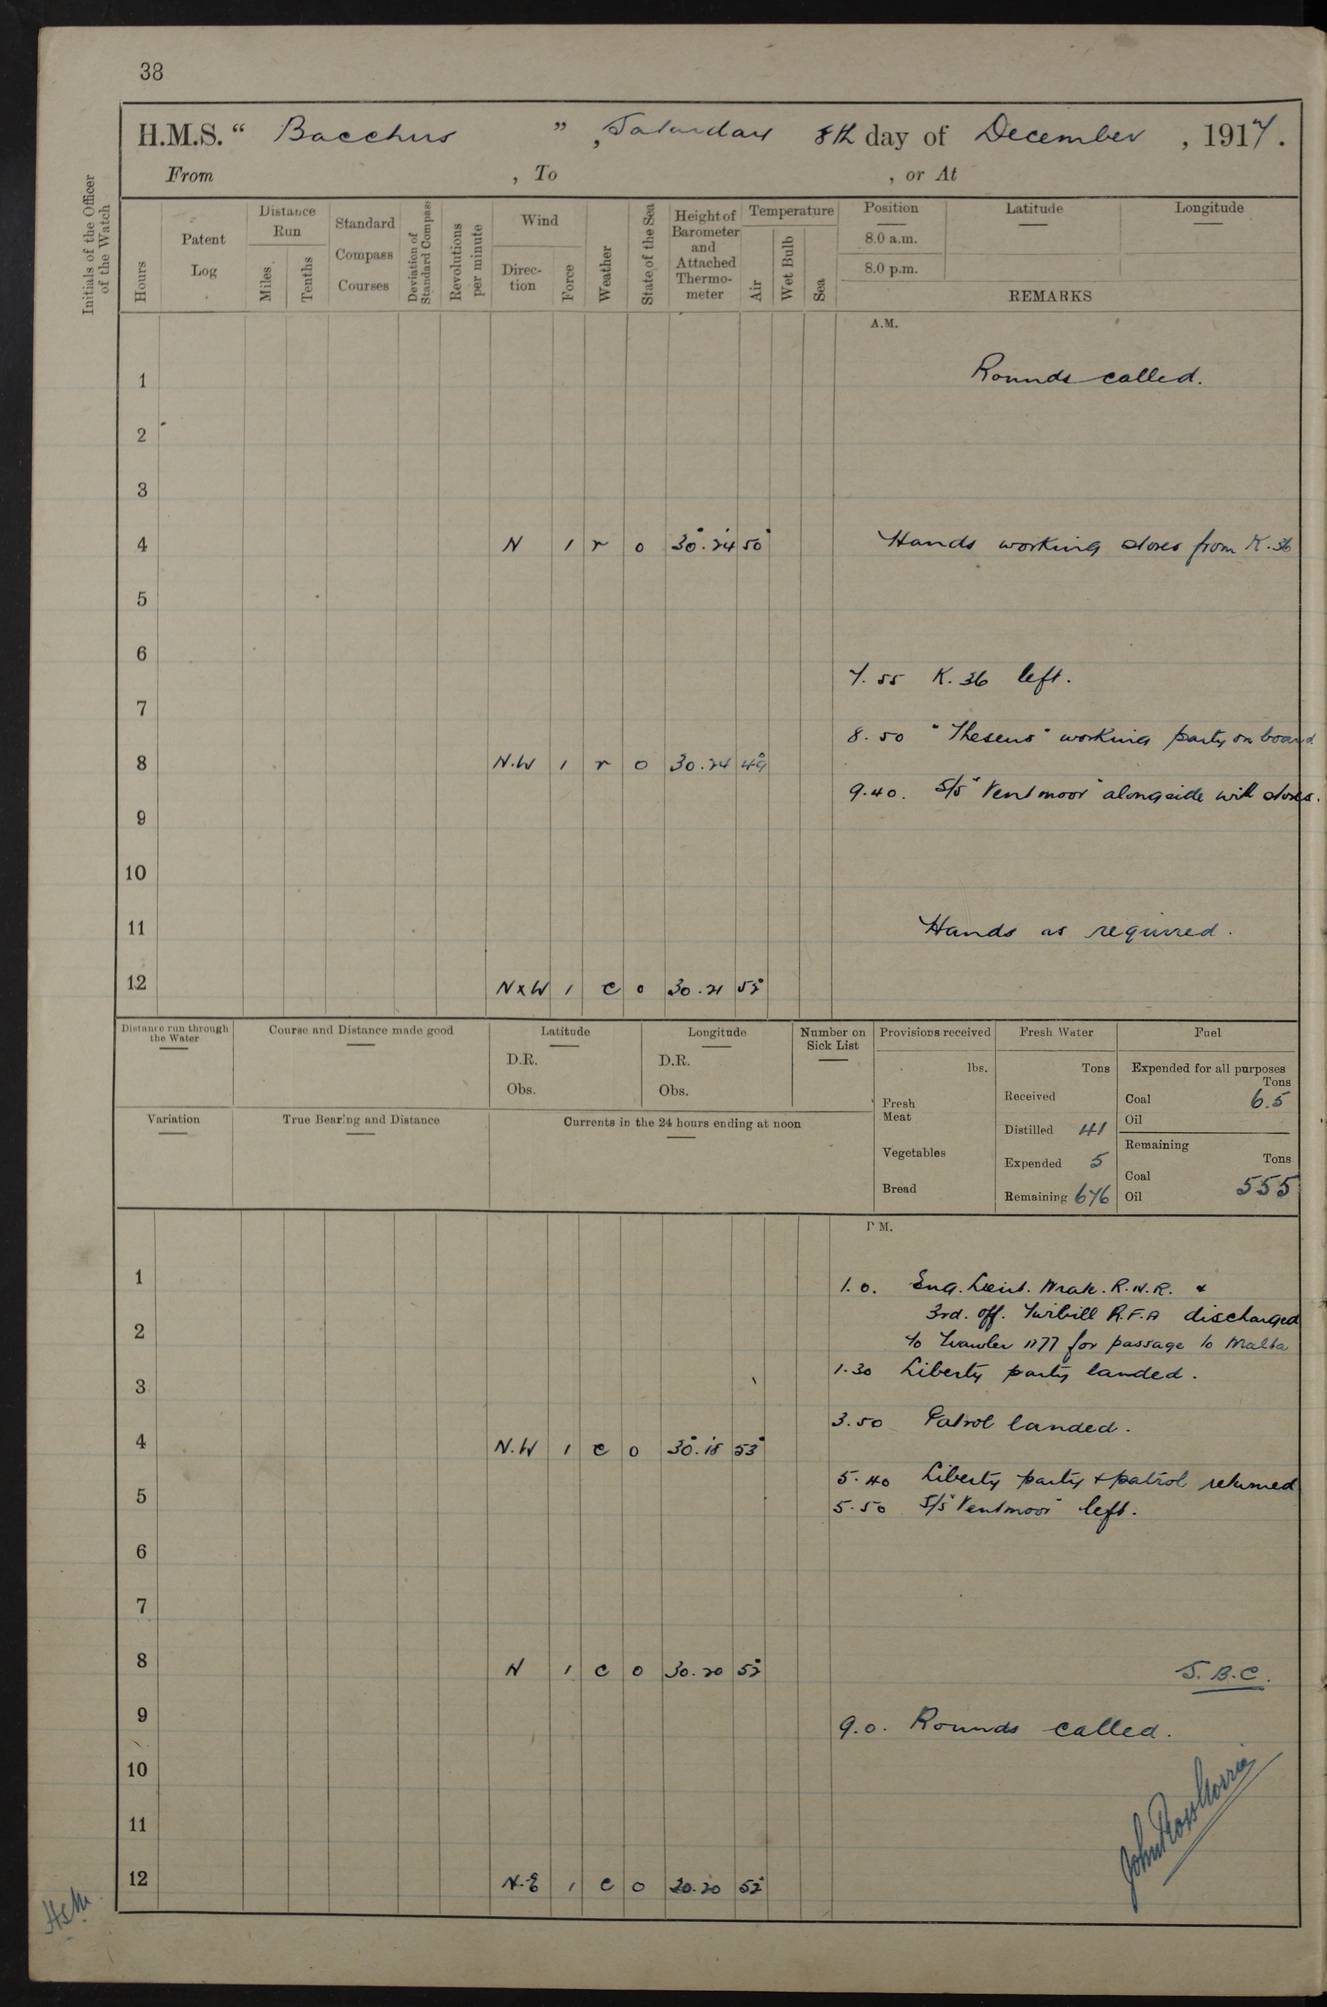 38
H.M.S. “ Bacchus ” , Saturday 8th day of December , 1917.
From , To , or At
Initials of the Officer of the Watch
Hours
Patent Log
Distance Run
Miles
Tenths
Standard Compass Courses
Deviation of Standard Compass
Revolutions per minute
Wind
Direc-tion
Force
Weather
State of the Sea
Height of Barometer and Attached Thermo-meter
Temperature
Air
Wet Bulb
Sea
Position
8.0 a.m.
8.0 p.m.
Latitude
Longitude
REMARKS
A.M.
1 Rounds called.
2
3
4 N 1 r 0 30.24 50 Hands working stores from K.36
5
6
7.55 K.36 left.
7
8.50 "Theseus" working party on board
8 N.W 1 r 0 30.24 49
9.40. S/S "Ventmoor" alongside with stores.
9
10
11 Hands as required.
12 NxW 1 c 0 30.21 52
Distance run through the Water
Course and Distance made good
Latitude
D.R.
Obs.
Longitude
D.R.
Obs.
Number on Sick List
Variation
True Bearing and Distance
Currents in the 24 hours ending at noon
Provisions received
lbs.
Fresh Meat
Vegetables
Bread
Fresh Water
Tons
Received
Distilled 41
Expended 5
Remaining 676
Fuel
Expended for all purposes
Tons
Coal 6.5
Oil
Remaining
Tons
Coal 555
Oil
P.M.
1 1.0. Eng. Lieut. R.N.R. &
3rd. off. R.F.A discharged
2 to Trawler 1177 for passage to Malta
1.30 Liberty party landed.
3
3.50 Patrol landed.
4 N.W 1 c 0 30.18 53
5.40 Liberty party & patrol returned
5 5.50 S/S "Ventmoor" left.
6
7
8 N 1 c 0 30.20 52 J.B.C.
9 9.0. Rounds called.
10
11
12 N.E 1 c 0 30.20 52